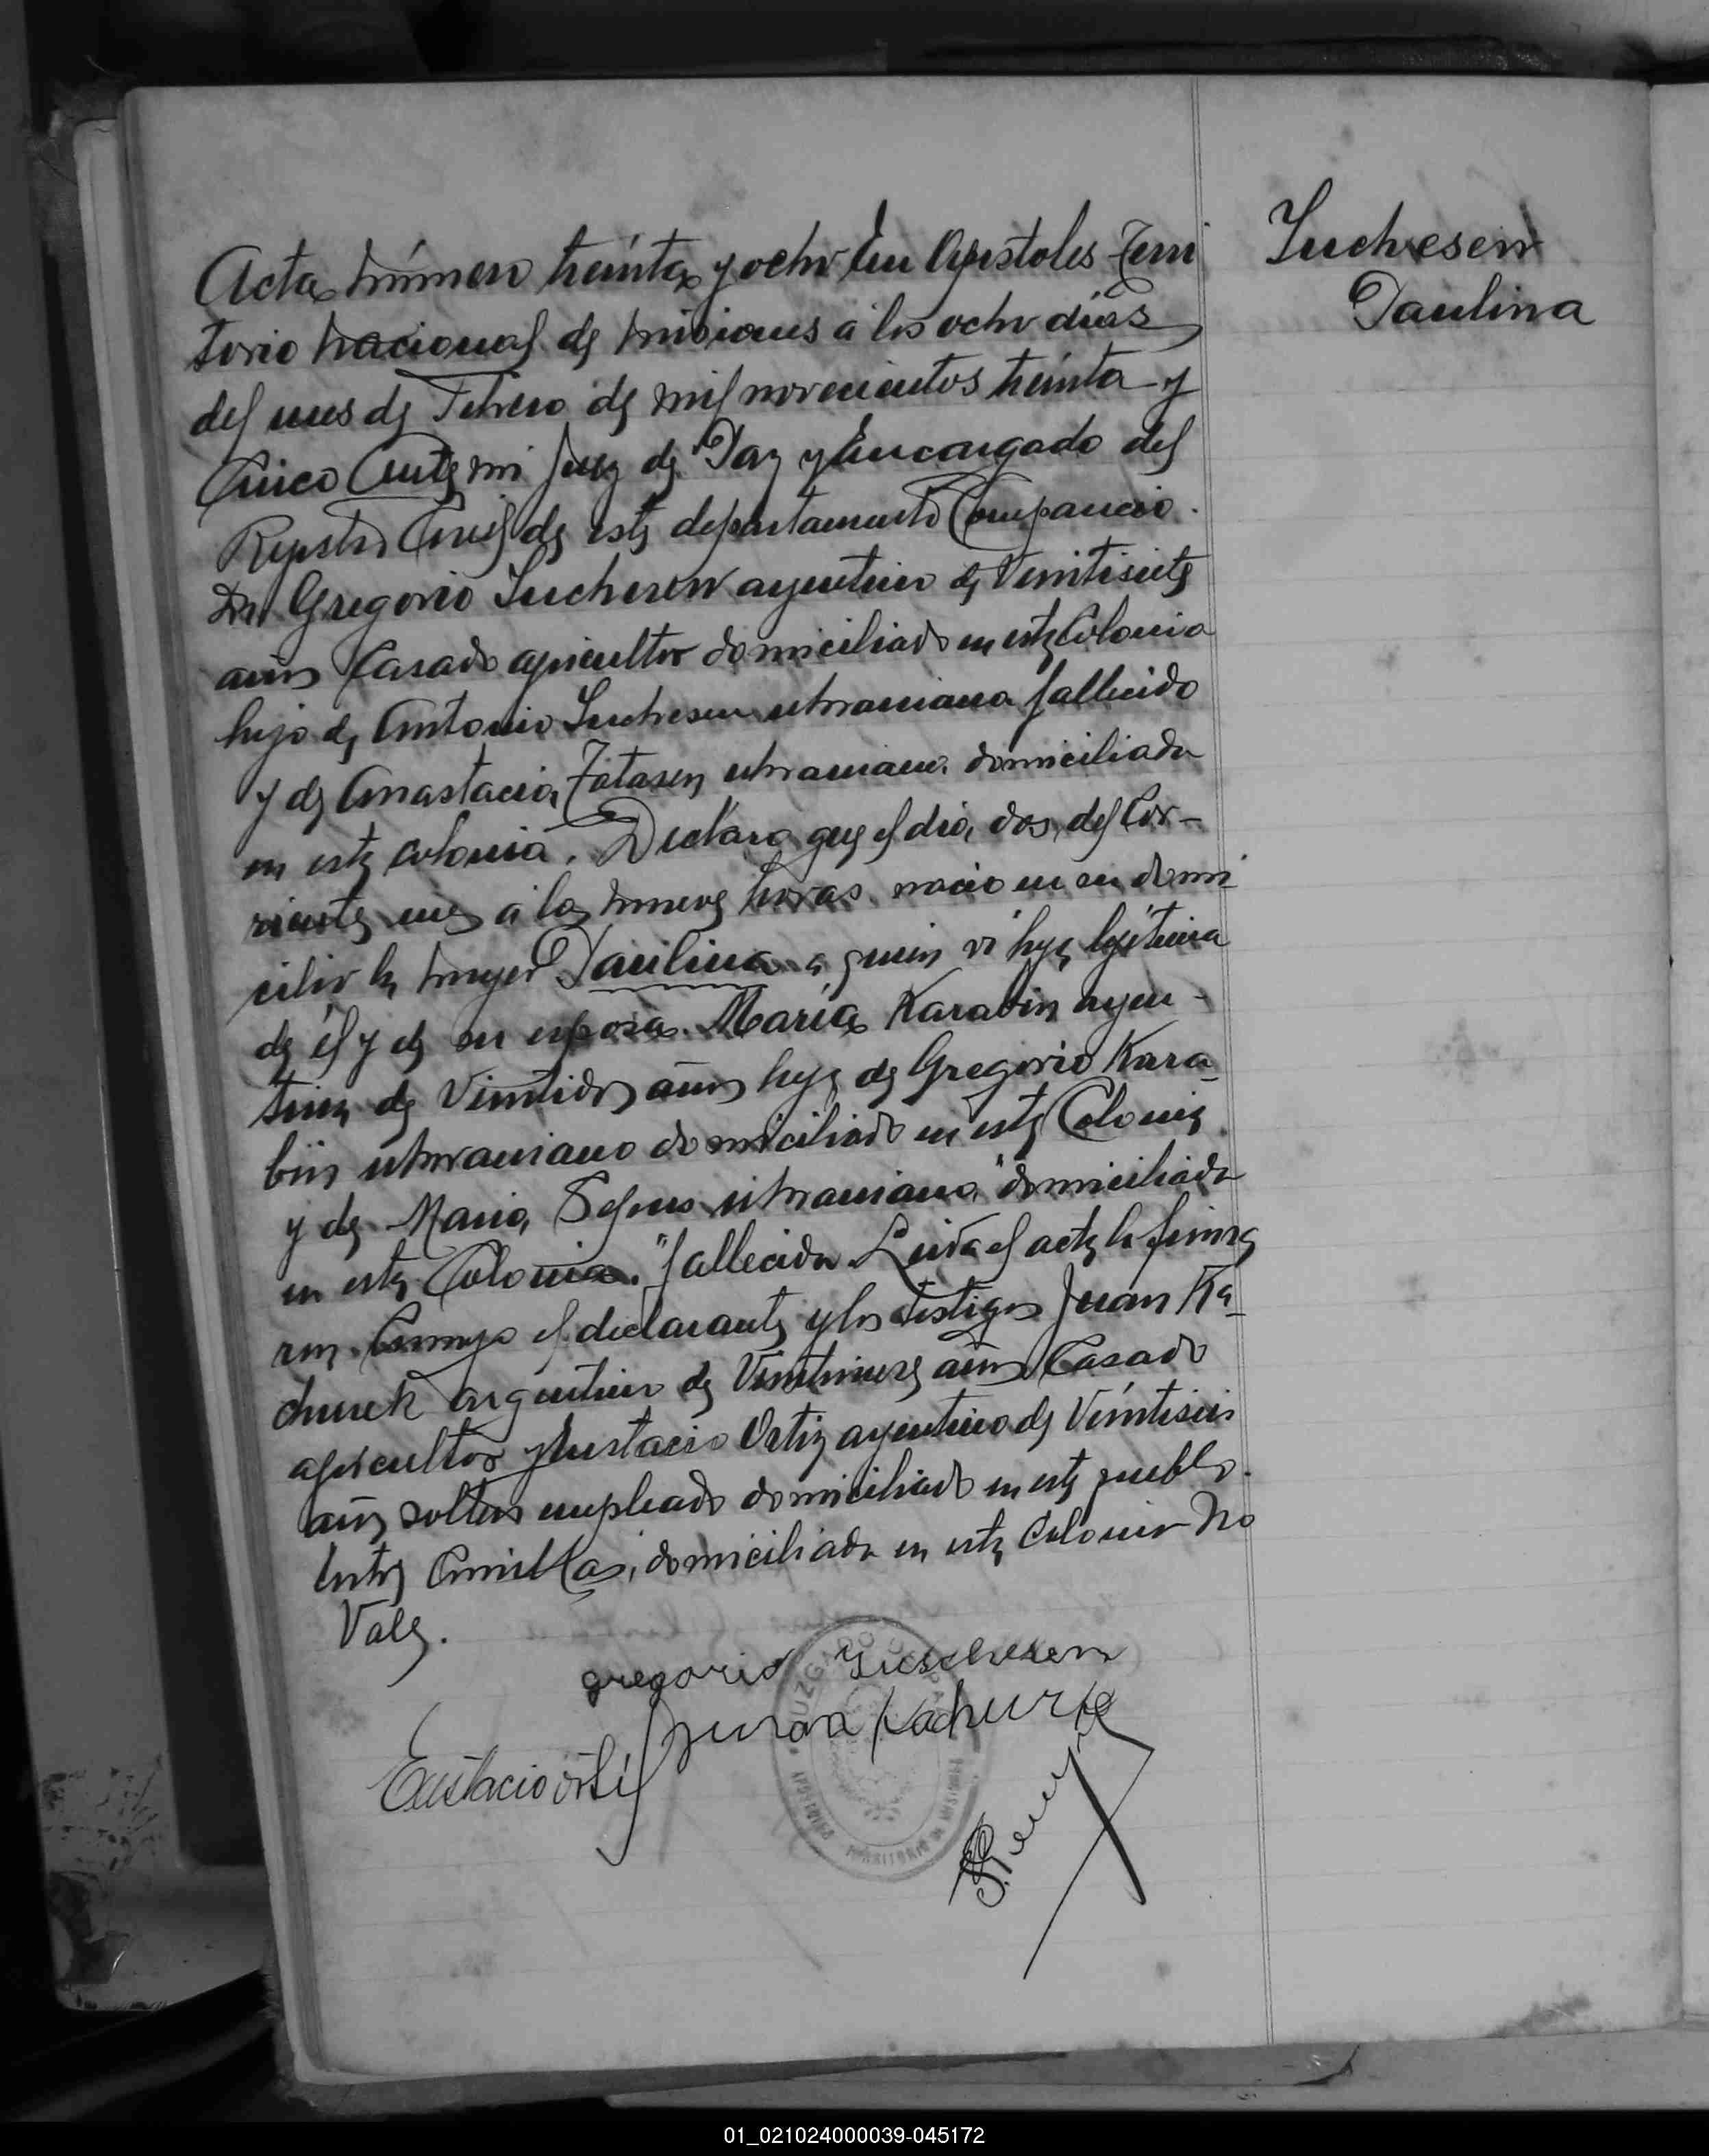 Acta número treinta y ocho En Apostoles Terri
torio nacional de misiones a los ocho días
del mes de Febrero de mil novecientos treinta y
Cinco Ante mi Juez de Paz y Encargado del
Registro Civil de este departamento Comparecio
Dn Gregorio argentino de Veintisiete
años Casado agricultor domiciliado en esta Colonia
hijo de Antonio ukraniana fallecido
y de Anastacia ukraniana domiciliada
en esta colonia. Declara que el dia dos del Cor-
riente mes a las nueve horas nacio en su domi
cilio la mujer Paulina a quien vi hija legitima
de él y de su esposa María Karabin argen-
tina de Veintidos años hija de Gregorio Kara-
bin ukraniano domiciliado en esta Colonia
y de Maria ukraniana "domiciliada
en esta Colonia." fallecida. Leida el acta la firma
ron Conmigo el declarante y los testigos Juan Ka-
churek argentino de Veintinueve años Casado
agricultor y Eustacio Ortiz argentino de Veintiseis
años soltero empleado domiciliado en este pueblo.
Entre Comillas, domiciliada en esta Colonia No
Vale.
gregorio
Juan Kachurek
Eustacio Ortiz
JUZGADO DE PAZ
APOSTOLES TERRITORIO DE MISIONES
Paulina
01_021024000039-045172